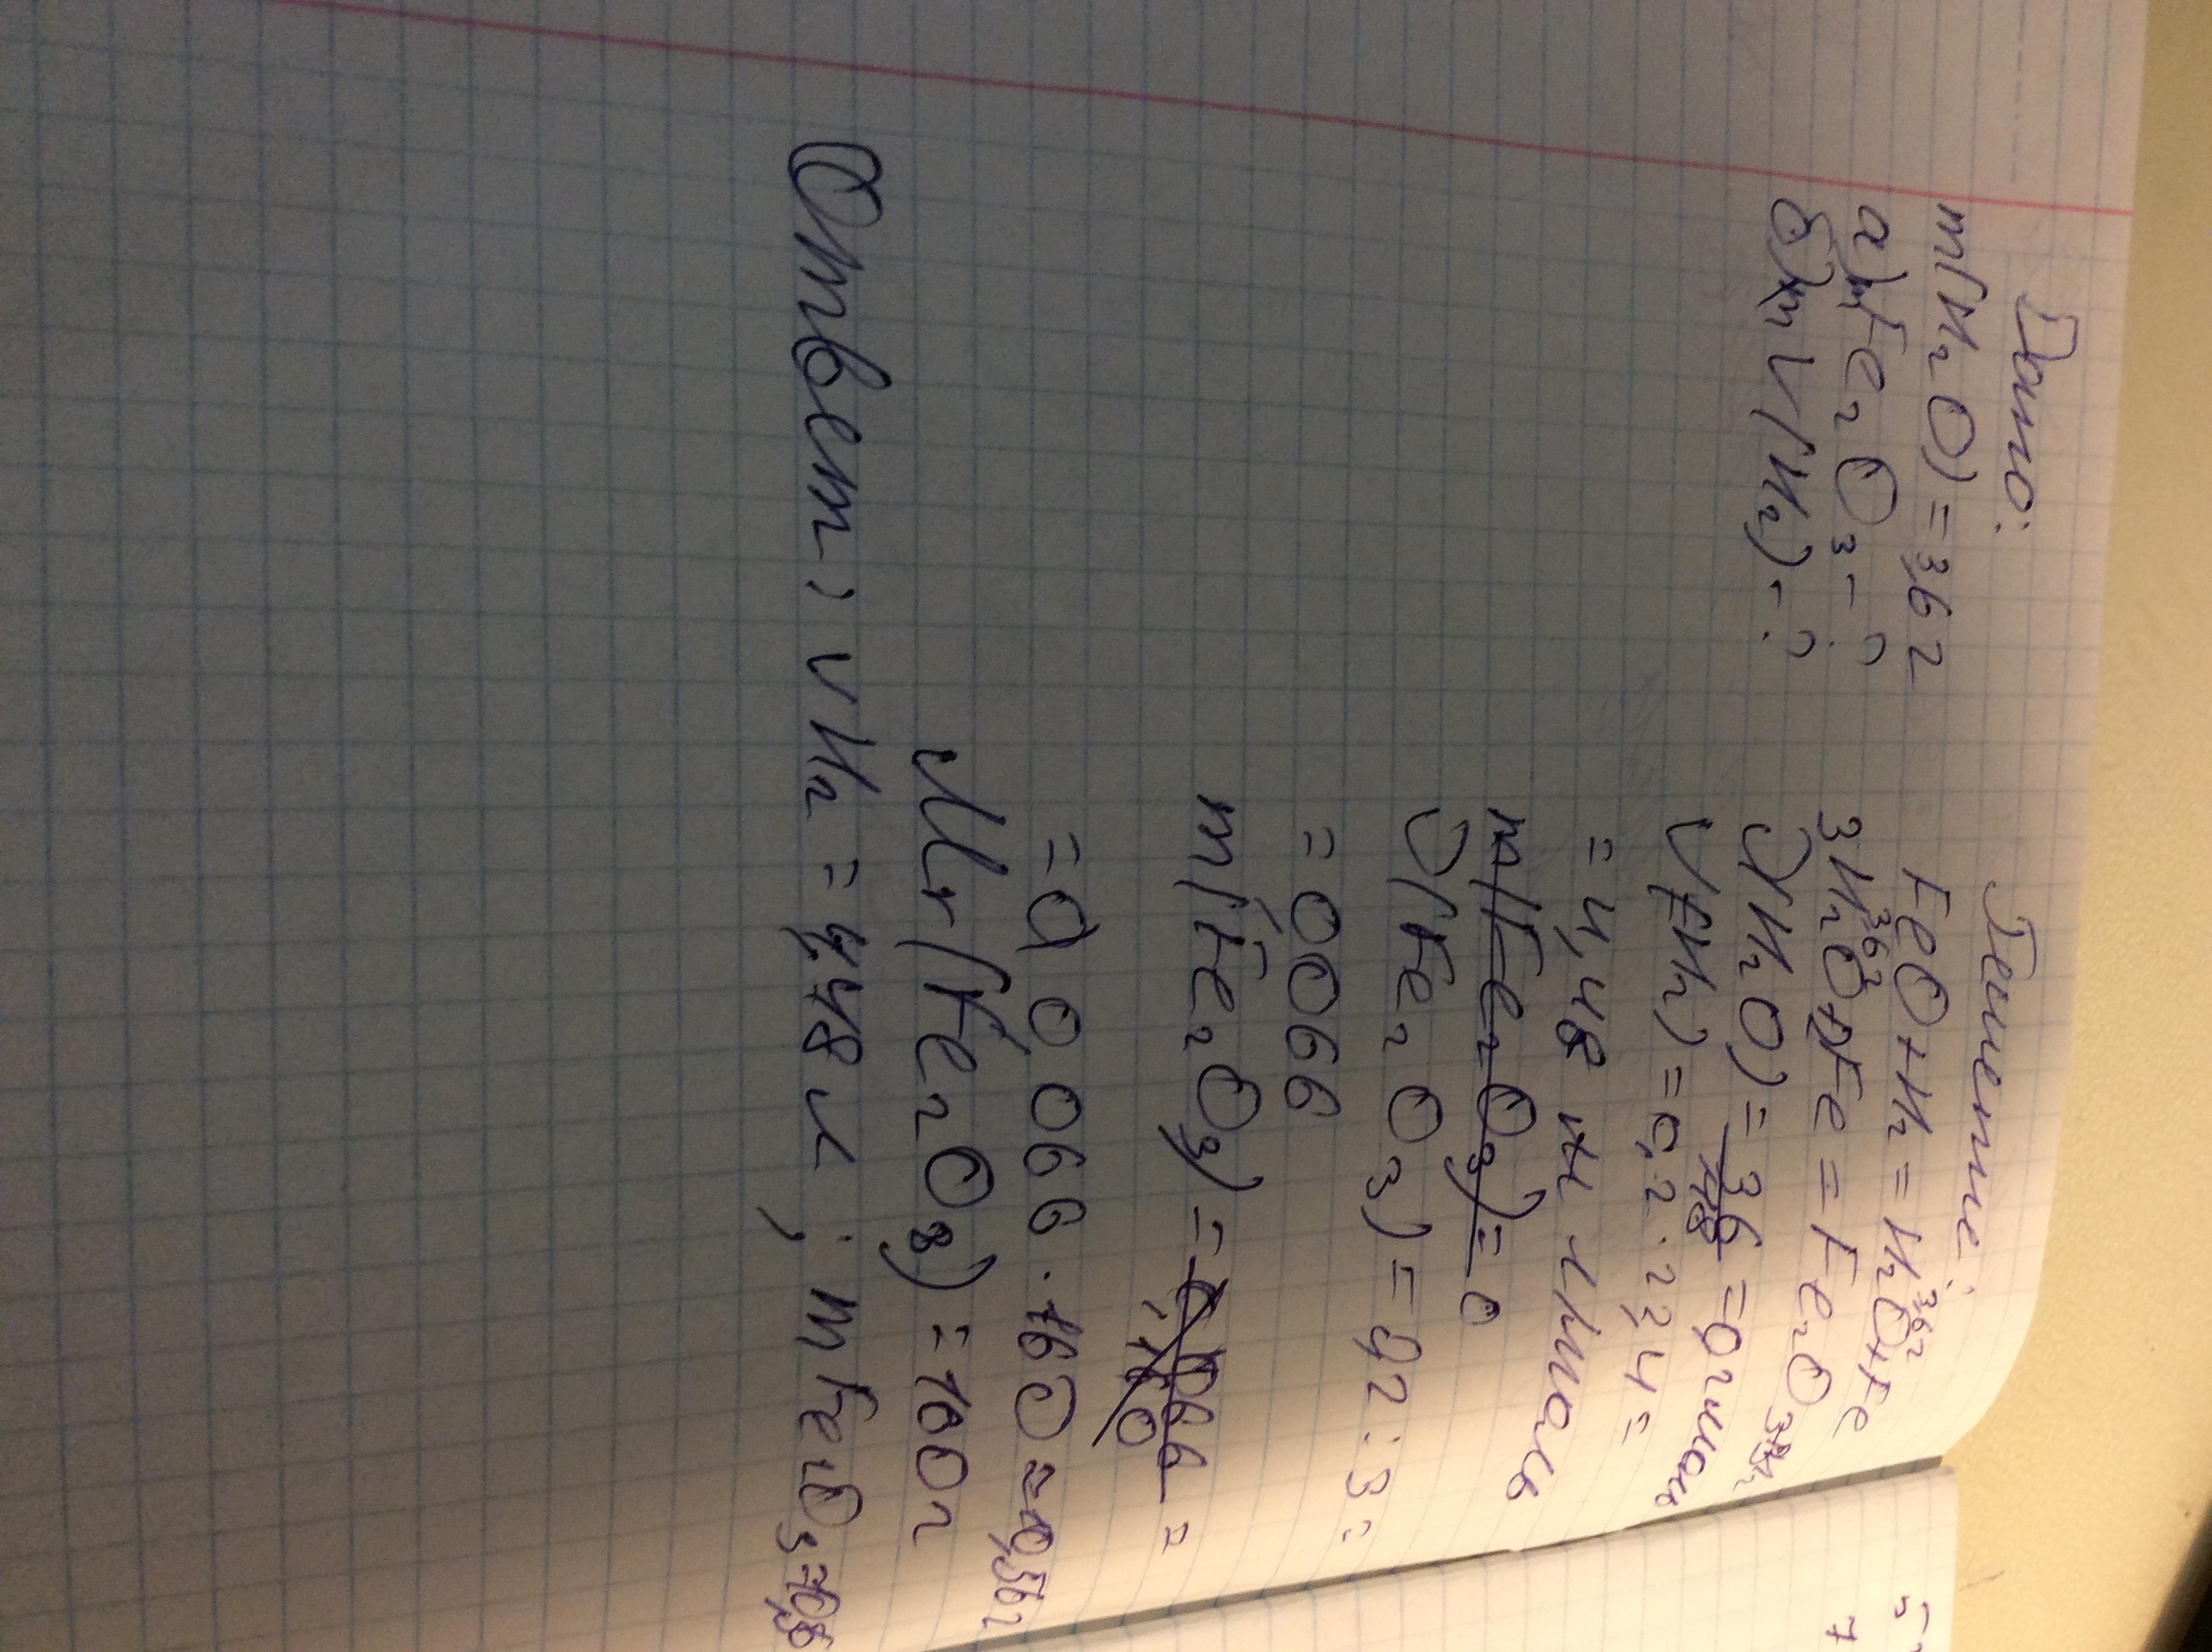 Дано:
m(H₂O) = 3,6 г
а) m Fe₂O₃ - ?
б) V(H₂) - ?
Решение:
FeO + H₂ = H₂O + Fe
3,6 г
3H₂O + 2Fe = Fe₂O₃ + 3H₂
3,6 г
ν(H₂O) = 3,6/18 = 0,2 моль
V(H₂) = 0,2 · 22,4 =
= 4,48 л
m(Fe₂O₃) = 0
ν(Fe₂O₃) = 0,2 : 3 =
= 0,066
m(Fe₂O₃) =
= 0,066 · 160 = 10,56 г
Mr(Fe₂O₃) = 160 г
Ответ: VH₂ = 4,48 л ; m Fe₂O₃ = 10,56